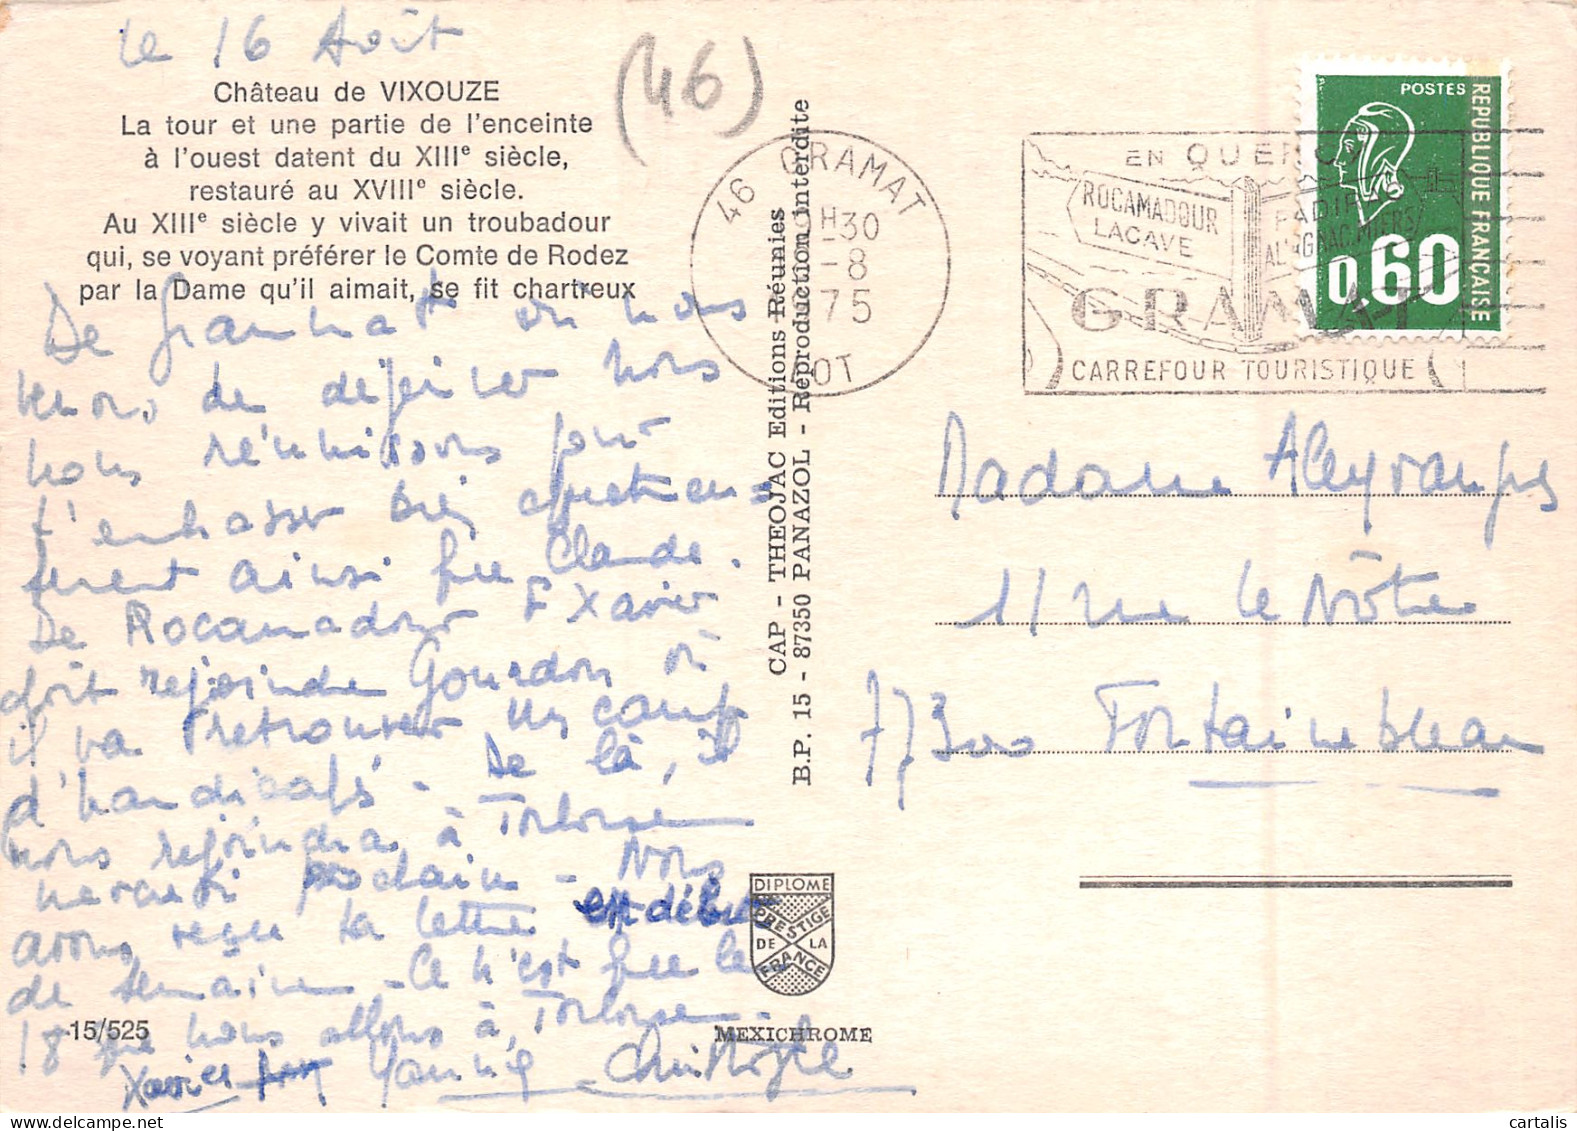 le 16 Août
(46)
Château de VIXOUZE
La tour et une partie de l'enceinte
à l'ouest datent du XIIIe siècle,
restauré au XVIIIe siècle.
Au XIIIe siècle y vivait un troubadour
qui, se voyant préférer le Comte de Rodez
par la Dame qu'il aimait, se fit chartreux
De Gramat où nous
venons de déjeuner nous
nous réunissons pour
t'embrasser bien affectueuse
ment ainsi que Claude.
De Rocamadour F. Xavier
doit rejoindre Gourdon où
il va retrouver un camp
d'handicapés - De là, il
nous rejoindra à Toulouse
mercredi prochain - Nous
avons reçu ta lettre en début
de semaine - Ce n'est que le
18 que nous allons à Toulouse -
Xavier Yannig Christigle
15/525
CAP - THEOJAC Editions Réunies
B.P. 15 - 87350 PANAZOL - Reproduction interdite
DIPLOME
PRESTIGE
DE LA
FRANCE
MEXICHROME
46 GRAMAT
H30
-8
75
LOT
EN QUERCY
ROCAMADOUR
LACAVE
PADIRAC
ALVIGNAC.MIERS
GRAMAT
CARREFOUR TOURISTIQUE
POSTES
REPUBLIQUE FRANÇAISE
0,60
Madame
11 rue le Nôtre
77300 Fontainebleau
cartalis